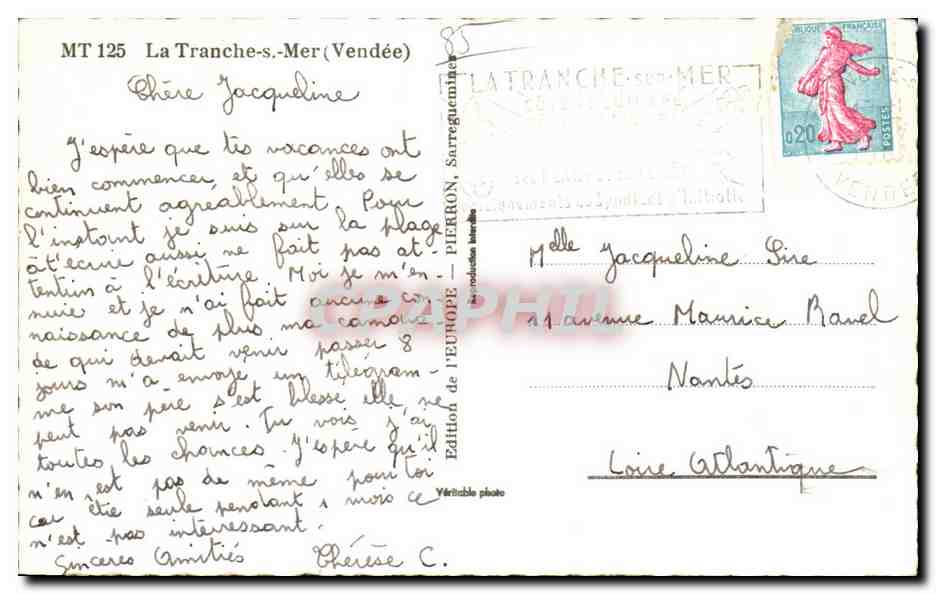 MT 125 La Tranche-s.-Mer (Vendée)
Chère Jacqueline
J'espère que tes vacances ont
bien commencer et qu'elles se
continuent agreablement. Pour
l'instant je suis sur la plage
à t'ecrire aussi ne fait pas at-
tention à l'écriture. Moi je m'en-
nuie et je n'ai fait aucune con-
naissance de plus ma camara-
de qui devait venir passer 8
jours m'a envoye un télégram-
me son père s'est blesse elle ne
peut pas venir. Tu vois j'ai
toutes les chances. J'espère qu'il
n'en est pas de même pour toi
car être seule pendant 1 mois ce
n'est pas intéressant.
Sinceres Amitiés Thérèse C.
85
Edition de l'EUROPE — PIERRON, Sarreguemines
Reproduction interdite
Véritable photo
LA TRANCHE-sur-MER
RÉPUBLIQUE FRANÇAISE
0,20
POSTES
VENDÉE
Mlle Jacqueline Sire
11 avenue Maurice Ravel
Nantes
Loire Atlantique
CPAPHIL